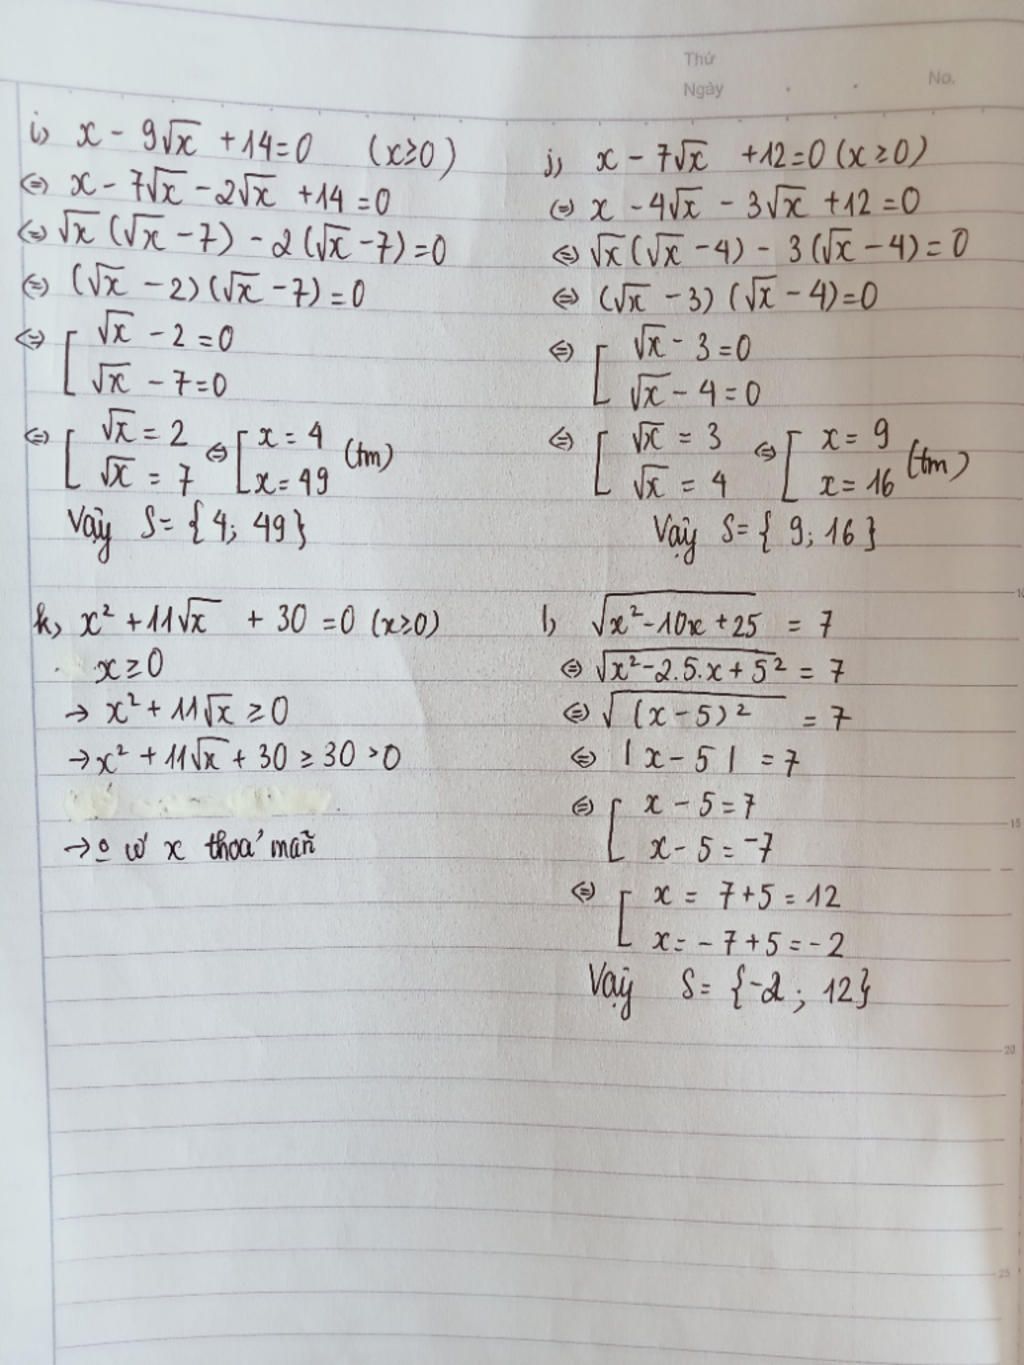 Thứ
Ngày
No.
i, x - 9√x + 14 = 0 (x ≥ 0)
⇔ x - 7√x - 2√x + 14 = 0
⇔ √x (√x - 7) - 2(√x - 7) = 0
⇔ (√x - 2)(√x - 7) = 0
⇔ [ √x - 2 = 0
√x - 7 = 0
⇔ [ √x = 2 ⇔ [ x = 4 (tm)
√x = 7 x = 49
Vậy S = {4; 49}
j, x - 7√x + 12 = 0 (x ≥ 0)
⇔ x - 4√x - 3√x + 12 = 0
⇔ √x (√x - 4) - 3(√x - 4) = 0
⇔ (√x - 3)(√x - 4) = 0
⇔ [ √x - 3 = 0
√x - 4 = 0
⇔ [ √x = 3 ⇔ [ x = 9 (tm)
√x = 4 x = 16
Vậy S = {9; 16}
k, x² + 11√x + 30 = 0 (x ≥ 0)
x ≥ 0
→ x² + 11√x ≥ 0
→ x² + 11√x + 30 ≥ 30 > 0
x thoả mãn
l, √(x² - 10x + 25) = 7
⇔ √(x² - 2.5.x + 5²) = 7
⇔ √((x - 5)²) = 7
⇔ |x - 5| = 7
⇔ [ x - 5 = 7
x - 5 = -7
⇔ [ x = 7 + 5 = 12
x = -7 + 5 = -2
Vậy S = {-2; 12}
10
15
20
25